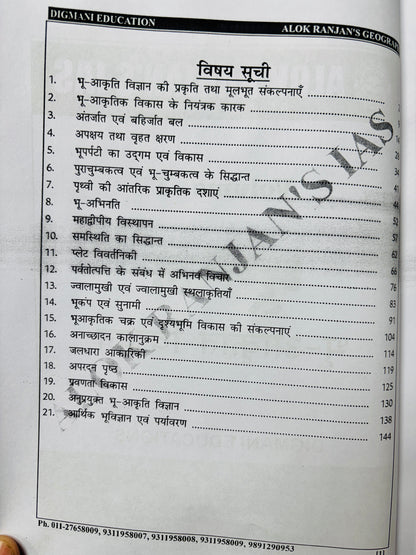 DIGMANI EDUCATION
ALOK RANJAN'S GEOGRAP
विषय सूची
1. भू-आकृति विज्ञान की प्रकृति तथा मूलभूत संकल्पनाएँ
2. भू-आकृतिक विकास के नियंत्रक कारक
3. अंतर्जात एवं बहिर्जात बल
4. अपक्षय तथा वृहत क्षरण
5. भूपर्पटी का उद्गम एवं विकास 34
6. पुराचुम्बकत्व एवं भू-चुम्बकत्व के सिद्धान्त 41
7. पृथ्वी की आंतरिक प्राकृतिक दशाएं 44
8. भू-अभिनति 52
9. महाद्वीपीय विस्थापन 57
10. समस्थिति का सिद्धान्त 62
11. प्लेट विवर्तनिकी
12. पर्वतोत्पत्ति के संबंध में अभिनव विचार 76
13. ज्वालामुखी एवं ज्वालामुखी स्थलाकृतियाँ 83
14. भूकंप एवं सुनामी 91
15. भूआकृतिक चक्र एवं दृश्यभूमि विकास की संकल्पनाएं 104
16. अनाच्छादन कालानुक्रम 114
17. जलधारा आकारिकी 119
18. अपरदन पृष्ठ 125
19. प्रवणता विकास 130
20. अनुप्रयुक्त भू-आकृति विज्ञान 138
21. आर्थिक भूविज्ञान एवं पर्यावरण 144
ALOK RANJAN'S IAS
Ph. 011-27658009, 9311958007, 9311958008, 9311958009, 9891290953